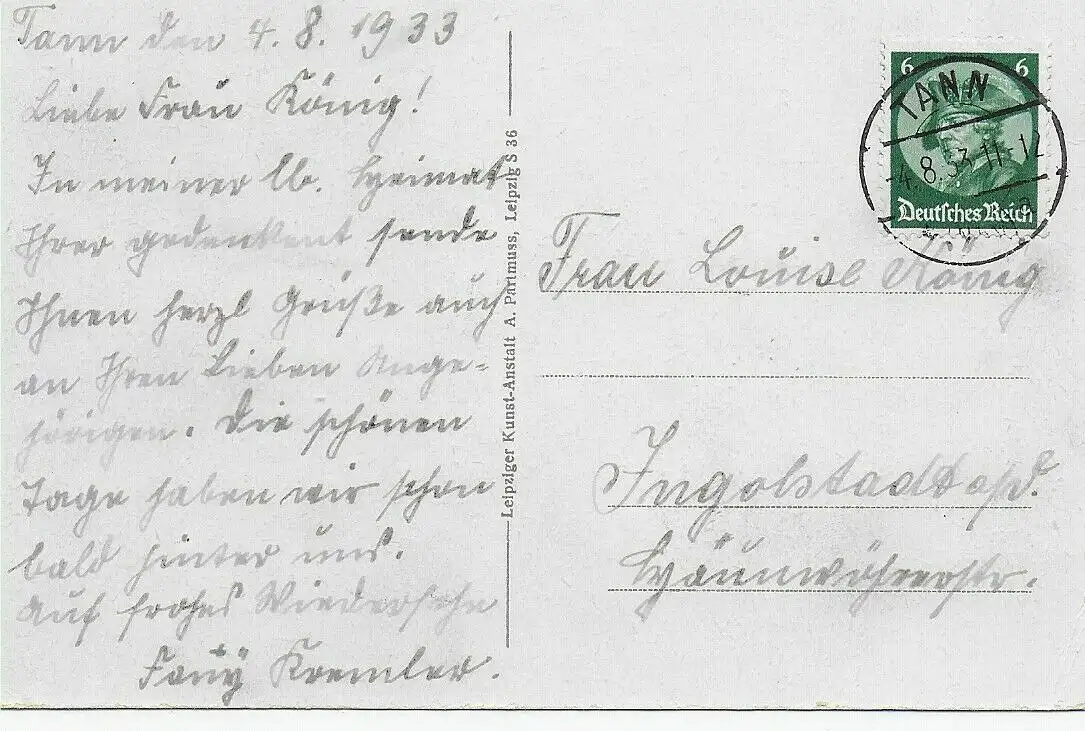 Tann den 4. 8. 1933
Liebe Frau König!
In meiner lb. Heimat
Ihrer gedenkent sende
Ihnen herzl Grüße auch
an Ihren Lieben Ange-
hörigen. Die schönen
Tage haben wir schon
bald hinter uns.
Auf frohes Wiedersehn
Fany Kremler.
Leipziger Kunst-Anstalt A. Partmuss, Leipzig S 36
6 6
Deutsches Reich
TANN
-4. 8. 33. 11-12
Frau Louise König
Ingolstadt a/d.